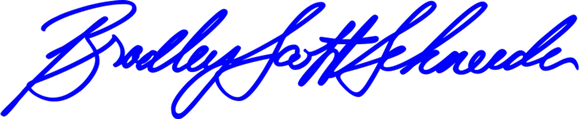 Bradley Scott Schneider